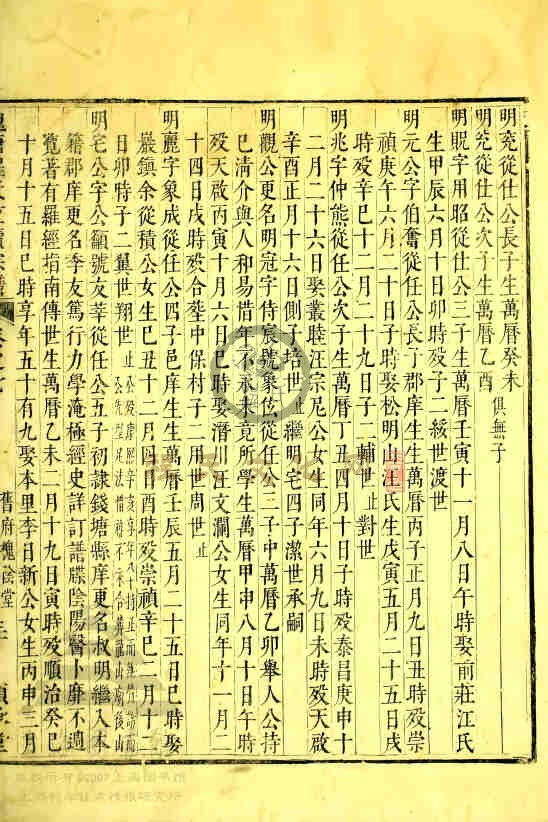 明兖從仕公長子生萬曆癸未
明兖從仕公次子生萬曆乙酉 俱無子
明昵字用昭從仕公三子生萬曆壬寅十一月八日午時娶前莊江氏
生甲辰六月十日卯時殁子二綏世渡世
明元公字伯奮從任公長子郡庠生生萬曆丙子正月九日丑時殁崇
禎庚午六月二十日子時娶松明山汪氏生戊寅五月二十五日戌
時殁辛巳十二月二十九日子二輔世止對世
明兆字仲熊從任公次子生萬曆丁丑四月十日子時殁泰昌庚申十
二月二十六日娶叢睦汪宗尼公女生同年六月九日未時殁天啟
辛酉正月十六日側子持世止繼明宅四子潔世承嗣
明觀公更名明冠字侍宸號象伭從任公三子中萬曆乙卯舉人公持
已清介與人和易惜年不永未竟所學生萬曆甲申八月十日午時
殁天啟丙寅十月六日巳時娶潛川汪文瀾公女生同年十一月二
十四日戌時殁合塟中保村子二用世周世止
明麗字象成從任公四子邑庠生生萬曆壬辰五月二十五日巳時娶
巖鎮余從積公女生巳丑十二月四日酉時殁崇禎辛巳二月十二
日卯時子二翼世翔世止
明宅公字公籲號友莘從任公五子初隸錢塘縣庠更名叔明繼入本
籍郡庠更名季友篤行力學淹極經史詳訂譜牒陰陽醫卜靡不遍
覽著有羅經指南傳世生萬曆乙未二月十九日寅時殁順治癸巳
十月十五日巳時享年五十有九娶本里李日新公女生丙申三月
舊府槐詮堂